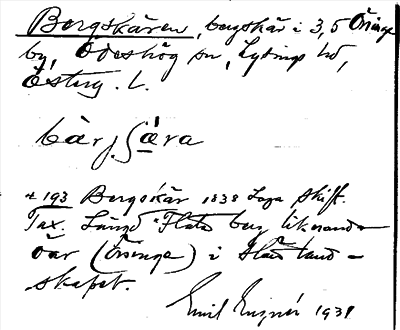 Bergskären, bergskär i 3, 5 Öninge
by, Ödeshög sn, Lysings hd,
Östерg. L.
bärʃȧra
193 Bergskär 1838 Laga Skift.
Tax. Längd "Flata berg liknande
öar (Öninge) i slättland-
skapet.
Emil 1931